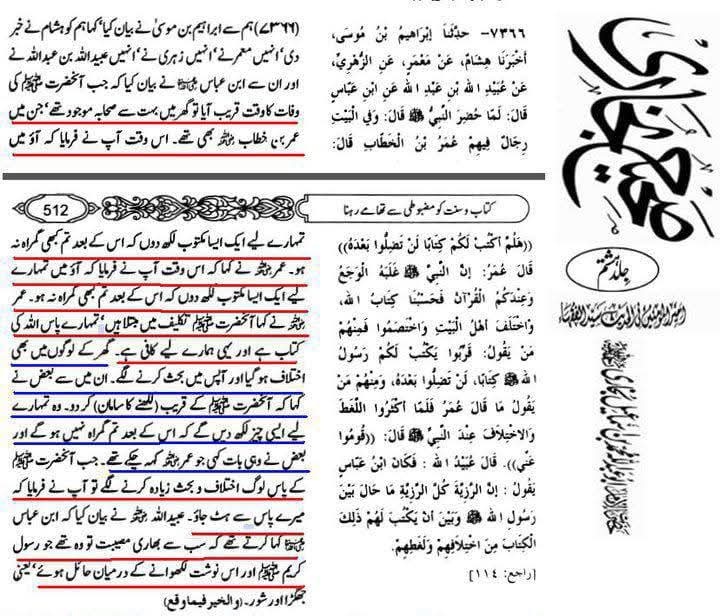 (۷۳۶۶) ہم سے ابراہیم بن موسیٰ نے بیان کیا' کہا ہم کو ہشام نے خبر
دی' انہیں معمر نے' انہیں زہری نے' انہیں عبیداللہ بن عبداللہ نے
اور ان سے ابن عباس رضی اللہ عنہما نے بیان کیا کہ جب آنحضرت ﷺ کی
وفات کا وقت قریب آیا تو گھر میں بہت سے صحابہ موجود تھے' جن میں
عمر بن خطاب رضی اللہ عنہ بھی تھے۔ اس وقت آپ نے فرمایا کہ آؤ میں
۷۳۶۶- حدَّثَنَا إِبْرَاهِيمُ بْنُ مُوسَى،
أَخْبَرَنَا هِشَامٌ، عَنْ مَعْمَرٍ، عَنِ الزُّهْرِيِّ،
عَنْ عُبَيْدِ الله بْنِ عَبْدِ الله عَنِ ابْنِ عَبَّاسٍ
قَالَ: لَمَّا حُضِرَ النَّبِيُّ ﷺ قَالَ: وَفِي الْبَيْتِ
رِجَالٌ فِيهِمْ عُمَرُ بْنُ الْخَطَّابِ قَالَ:
صحیح بخاری
جلد ہشتم
512
کتاب و سنت کو مضبوطی سے تھامے رہنا
تمہارے لیے ایک ایسا مکتوب لکھ دوں کہ اس کے بعد تم کبھی گمراہ نہ
ہو۔ عمر رضی اللہ عنہ نے کہا کہ اس وقت آپ نے فرمایا کہ آؤ میں تمہارے
لیے ایک ایسا مکتوب لکھ دوں کہ اس کے بعد تم کبھی گمراہ نہ ہو۔ عمر
رضی اللہ عنہ نے کہا آنحضرت ﷺ تکلیف میں مبتلا ہیں' تمہارے پاس اللہ کی
کتاب ہے اور یہی ہمارے لیے کافی ہے۔ گھر کے لوگوں میں بھی
اختلاف ہو گیا اور آپس میں بحث کرنے لگے۔ ان میں سے بعض نے
کہا کہ آنحضرت ﷺ کے قریب (لکھنے کا سامان) کر دو۔ وہ تمہارے
لیے ایسی چیز لکھ دیں گے کہ اس کے بعد تم گمراہ نہیں ہو گے اور
بعض نے وہی بات کہی جو عمر رضی اللہ عنہ کہہ چکے تھے۔ جب آنحضرت ﷺ
کے پاس لوگ اختلاف و بحث زیادہ کرنے لگے تو آپ نے فرمایا کہ
میرے پاس سے ہٹ جاؤ۔ عبیداللہ رضی اللہ عنہ نے بیان کیا کہ ابن عباس
رضی اللہ عنہما کہا کرتے تھے کہ سب سے بھاری مصیبت تو وہ تھے جو رسول
کریم ﷺ اور اس نوشت لکھوانے کے درمیان حائل ہوئے' یعنی
جھگڑا اور شور۔ (والخیر فیما وقع)
((هَلُمَّ أَكْتُبْ لَكُمْ كِتَابًا لَنْ تَضِلُّوا بَعْدَهُ))
قَالَ عُمَرُ: إِنَّ النَّبِيَّ ﷺ غَلَبَهُ الْوَجَعُ
وَعِنْدَكُمُ الْقُرْآنُ فَحَسْبُنَا كِتَابُ الله،
وَاخْتَلَفَ أَهْلُ الْبَيْتِ وَاخْتَصَمُوا فَمِنْهُمْ
مَنْ يَقُولُ: قَرِّبُوا يَكْتُبْ لَكُمْ رَسُولُ
الله ﷺ كِتَابًا، لَنْ تَضِلُّوا بَعْدَهُ، وَمِنْهُمْ مَنْ
يَقُولُ مَا قَالَ عُمَرُ فَلَمَّا أَكْثَرُوا اللَّغَطَ
وَالاخْتِلاَفَ عِنْدَ النَّبِيِّ ﷺ قَالَ: ((قُومُوا
عَنِّي)). قَالَ عُبَيْدُ الله : فَكَانَ ابْنُ عَبَّاسٍ
يَقُولُ : إِنَّ الرَّزِيَّةَ كُلَّ الرَّزِيَّةِ مَا حَالَ بَيْنَ
رَسُولِ الله ﷺ وَبَيْنَ أَنْ يَكْتُبَ لَهُمْ ذَلِكَ
الْكِتَابَ مِنْ اخْتِلاَفِهِمْ وَلَغَطِهِمْ.
[راجع: ١١٤]